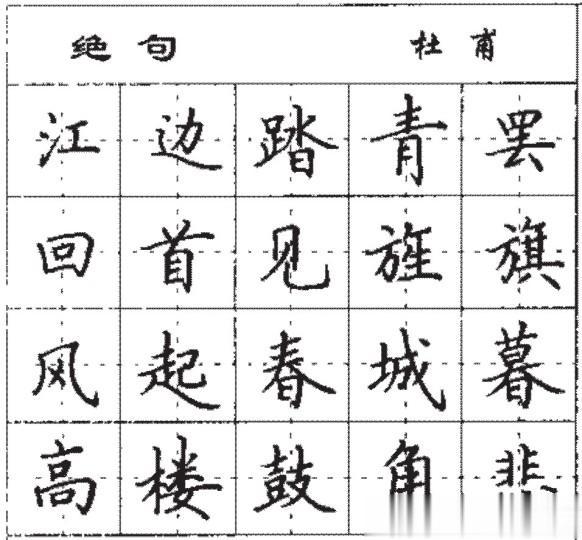 绝句 杜甫
江边踏青罢
回首见旌旗
风起春城暮
高楼鼓角悲